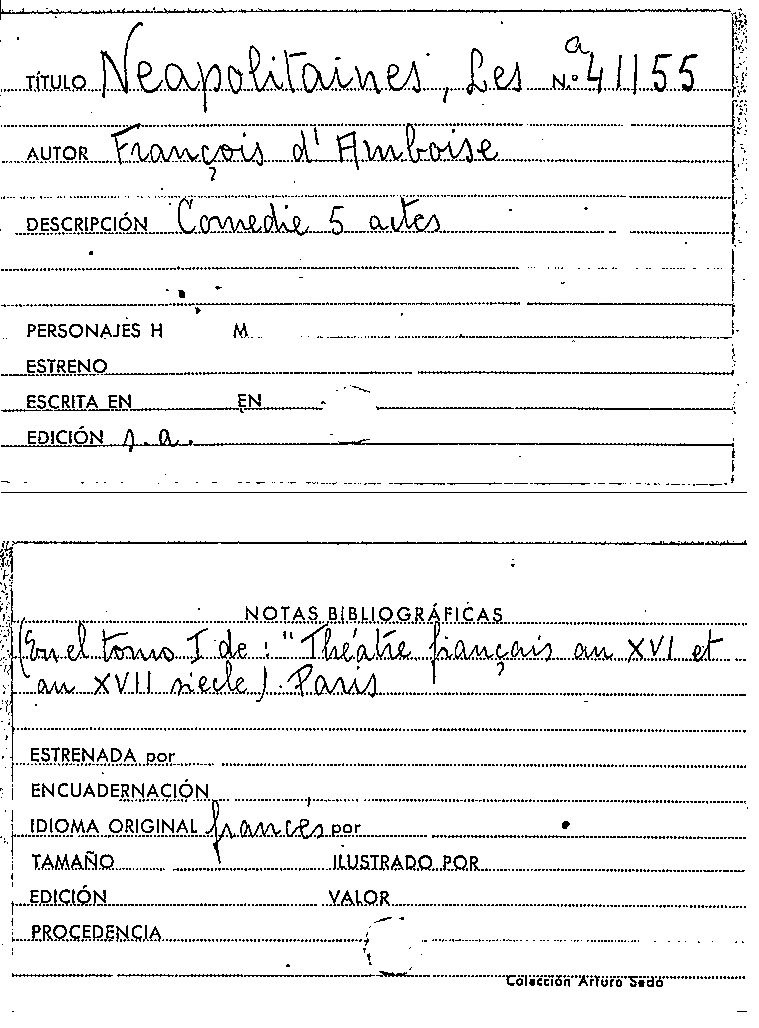 TÍTULO Neapolitaines, Les N.º a 41155
AUTOR François d'Amboise
DESCRIPCIÓN Comedie 5 actes
PERSONAJES H M.
ESTRENO
ESCRITA EN EN
EDICIÓN s.a.
NOTAS BIBLIOGRÁFICAS
(En el tomo I de: "Théatre français au XVI et
au XVII siecle). Paris
ESTRENADA por
ENCUADERNACIÓN
IDIOMA ORIGINAL francés por
TAMAÑO ILUSTRADO POR
EDICIÓN VALOR
PROCEDENCIA
Colección Arturo Sedó